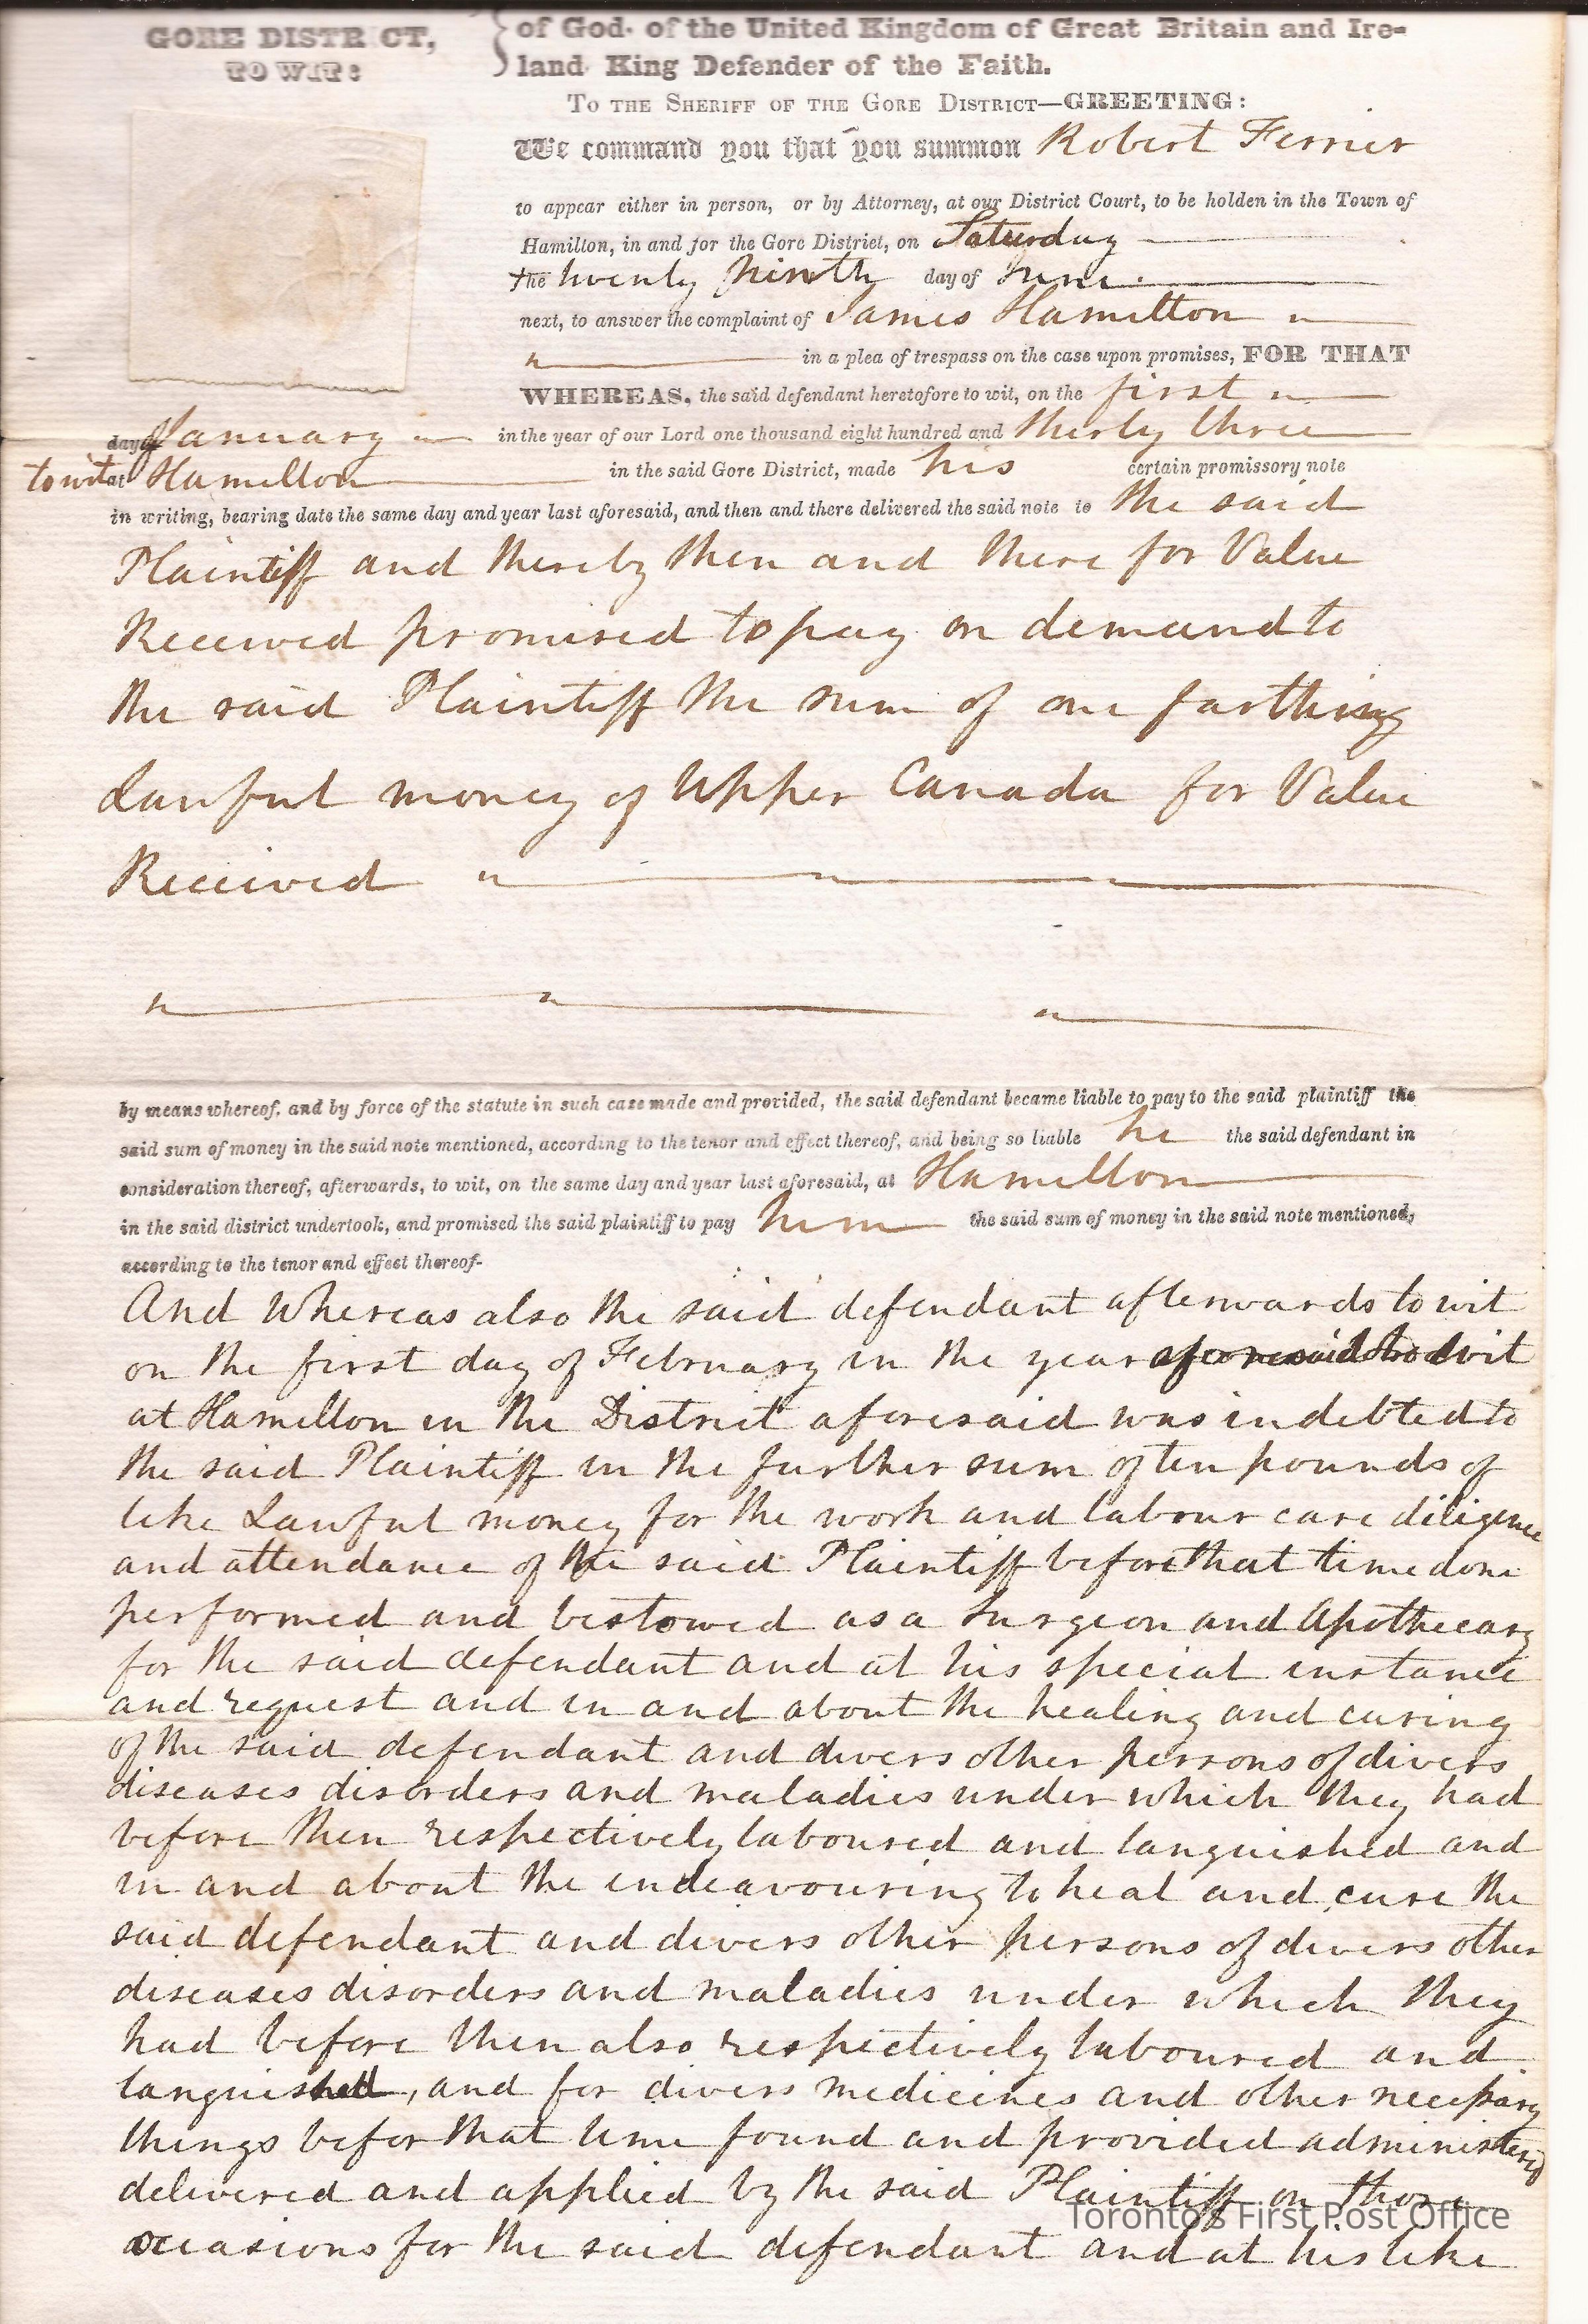 GORE DISTRICT,
TO WIT:
of God, of the United Kingdom of Great Britain and Ire-
land King Defender of the Faith.
To the Sheriff of the Gore District—GREETING:
We command you that you summon Robert Ferrier
to appear either in person, or by Attorney, at our District Court, to be holden in the Town of
Hamilton, in and for the Gore District, on Saturday
the twenty ninth day of June
next, to answer the complaint of James Hamilton
in a plea of trespass on the case upon promises, FOR THAT
WHEREAS, the said defendant heretofore to wit, on the first
day of January in the year of our Lord one thousand eight hundred and thirty three
to wit at Hamilton in the said Gore District, made his certain promissory note
in writing, bearing date the same day and year last aforesaid, and then and there delivered the said note to the said
Plaintiff and thereby then and there for Value
Received promised to pay on demand to
the said Plaintiff the sum of one farthing
Lawful money of Upper Canada for Value
Received
by means whereof, and by force of the statute in such case made and provided, the said defendant became liable to pay to the said plaintiff the
said sum of money in the said note mentioned, according to the tenor and effect thereof, and being so liable he the said defendant in
consideration thereof, afterwards, to wit, on the same day and year last aforesaid, at Hamilton
in the said district undertook, and promised the said plaintiff to pay him the said sum of money in the said note mentioned,
according to the tenor and effect thereof-
And Whereas also the said defendant afterwards to wit
on the first day of February in the year aforesaid to wit
at Hamilton in the District aforesaid was indebted to
the said Plaintiff in the further sum of ten pounds of
like Lawful money for the work and labour care diligence
and attendance of the said Plaintiff before that time done
performed and bestowed as a Surgeon and Apothecary
for the said defendant and at his special instance
and request and in and about the healing and curing
of the said defendant and divers other persons of divers
diseases disorders and maladies under which they had
before then respectively laboured and languished and
in and about the endeavouring to heal and cure the
said defendant and divers other persons of divers other
diseases disorders and maladies under which they
had before then also respectively laboured and
languished, and for divers medicines and other necessary
things befor that time found and provided administered
delivered and applied by the said Plaintiff on those
occasions for the said defendant and at his like
Toronto's First Post Office